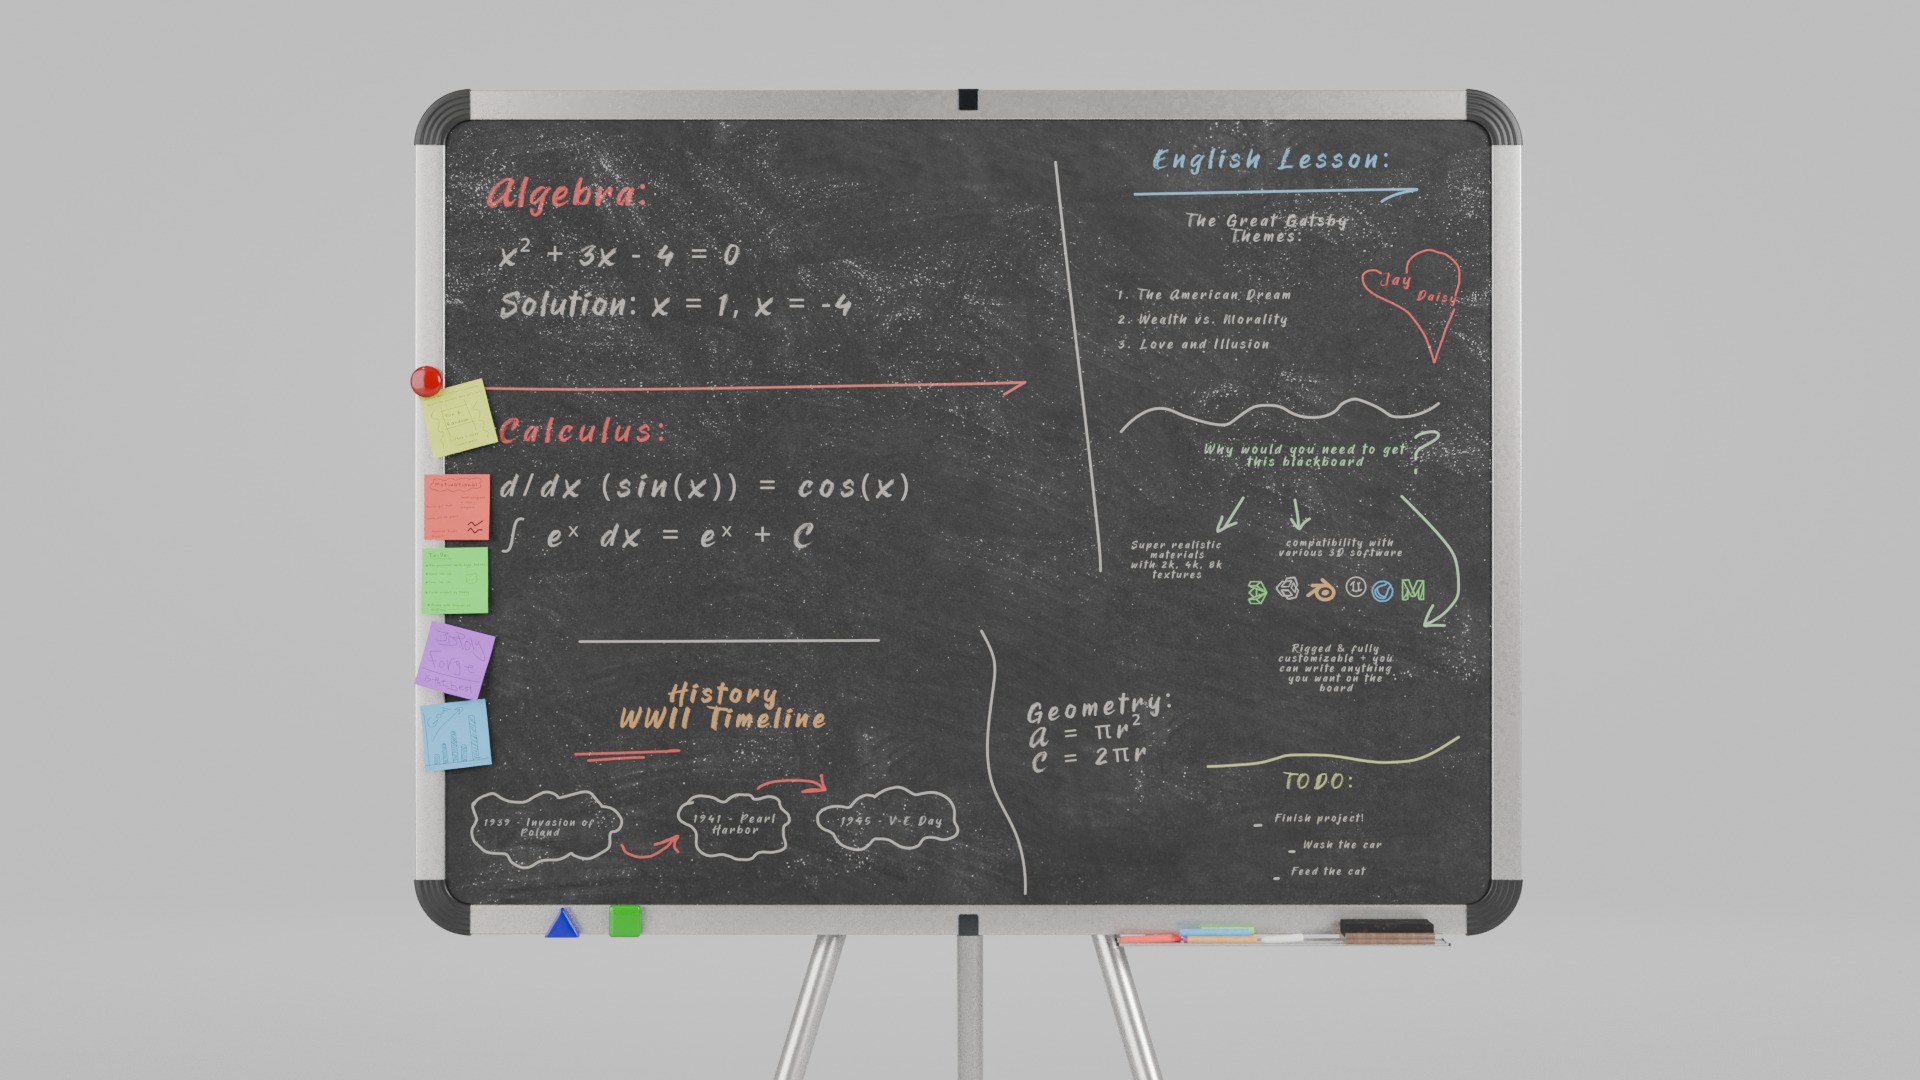 Algebra:
x² + 3x - 4 = 0
Solution: x = 1, x = -4
Calculus:
d/dx (sin(x)) = cos(x)
∫ eˣ dx = eˣ + C
History
WWII Timeline
1939 - Invasion of
Poland
1941 - Pearl
Harbor
1945 - V-E Day
English Lesson:
The Great Gatsby
Themes:
1. The American Dream
2. Wealth vs. Morality
3. Love and Illusion
Jay
Daisy
Why would you need to get
this blackboard
?
Super realistic
materials
with 2k, 4k, 8k
textures
compatibility with
various 3D software
Rigged & fully
customizable + you
can write anything
you want on the
board
Geometry:
A = πr²
C = 2πr
TODO:
- Finish project!
- Wash the car
- Feed the cat